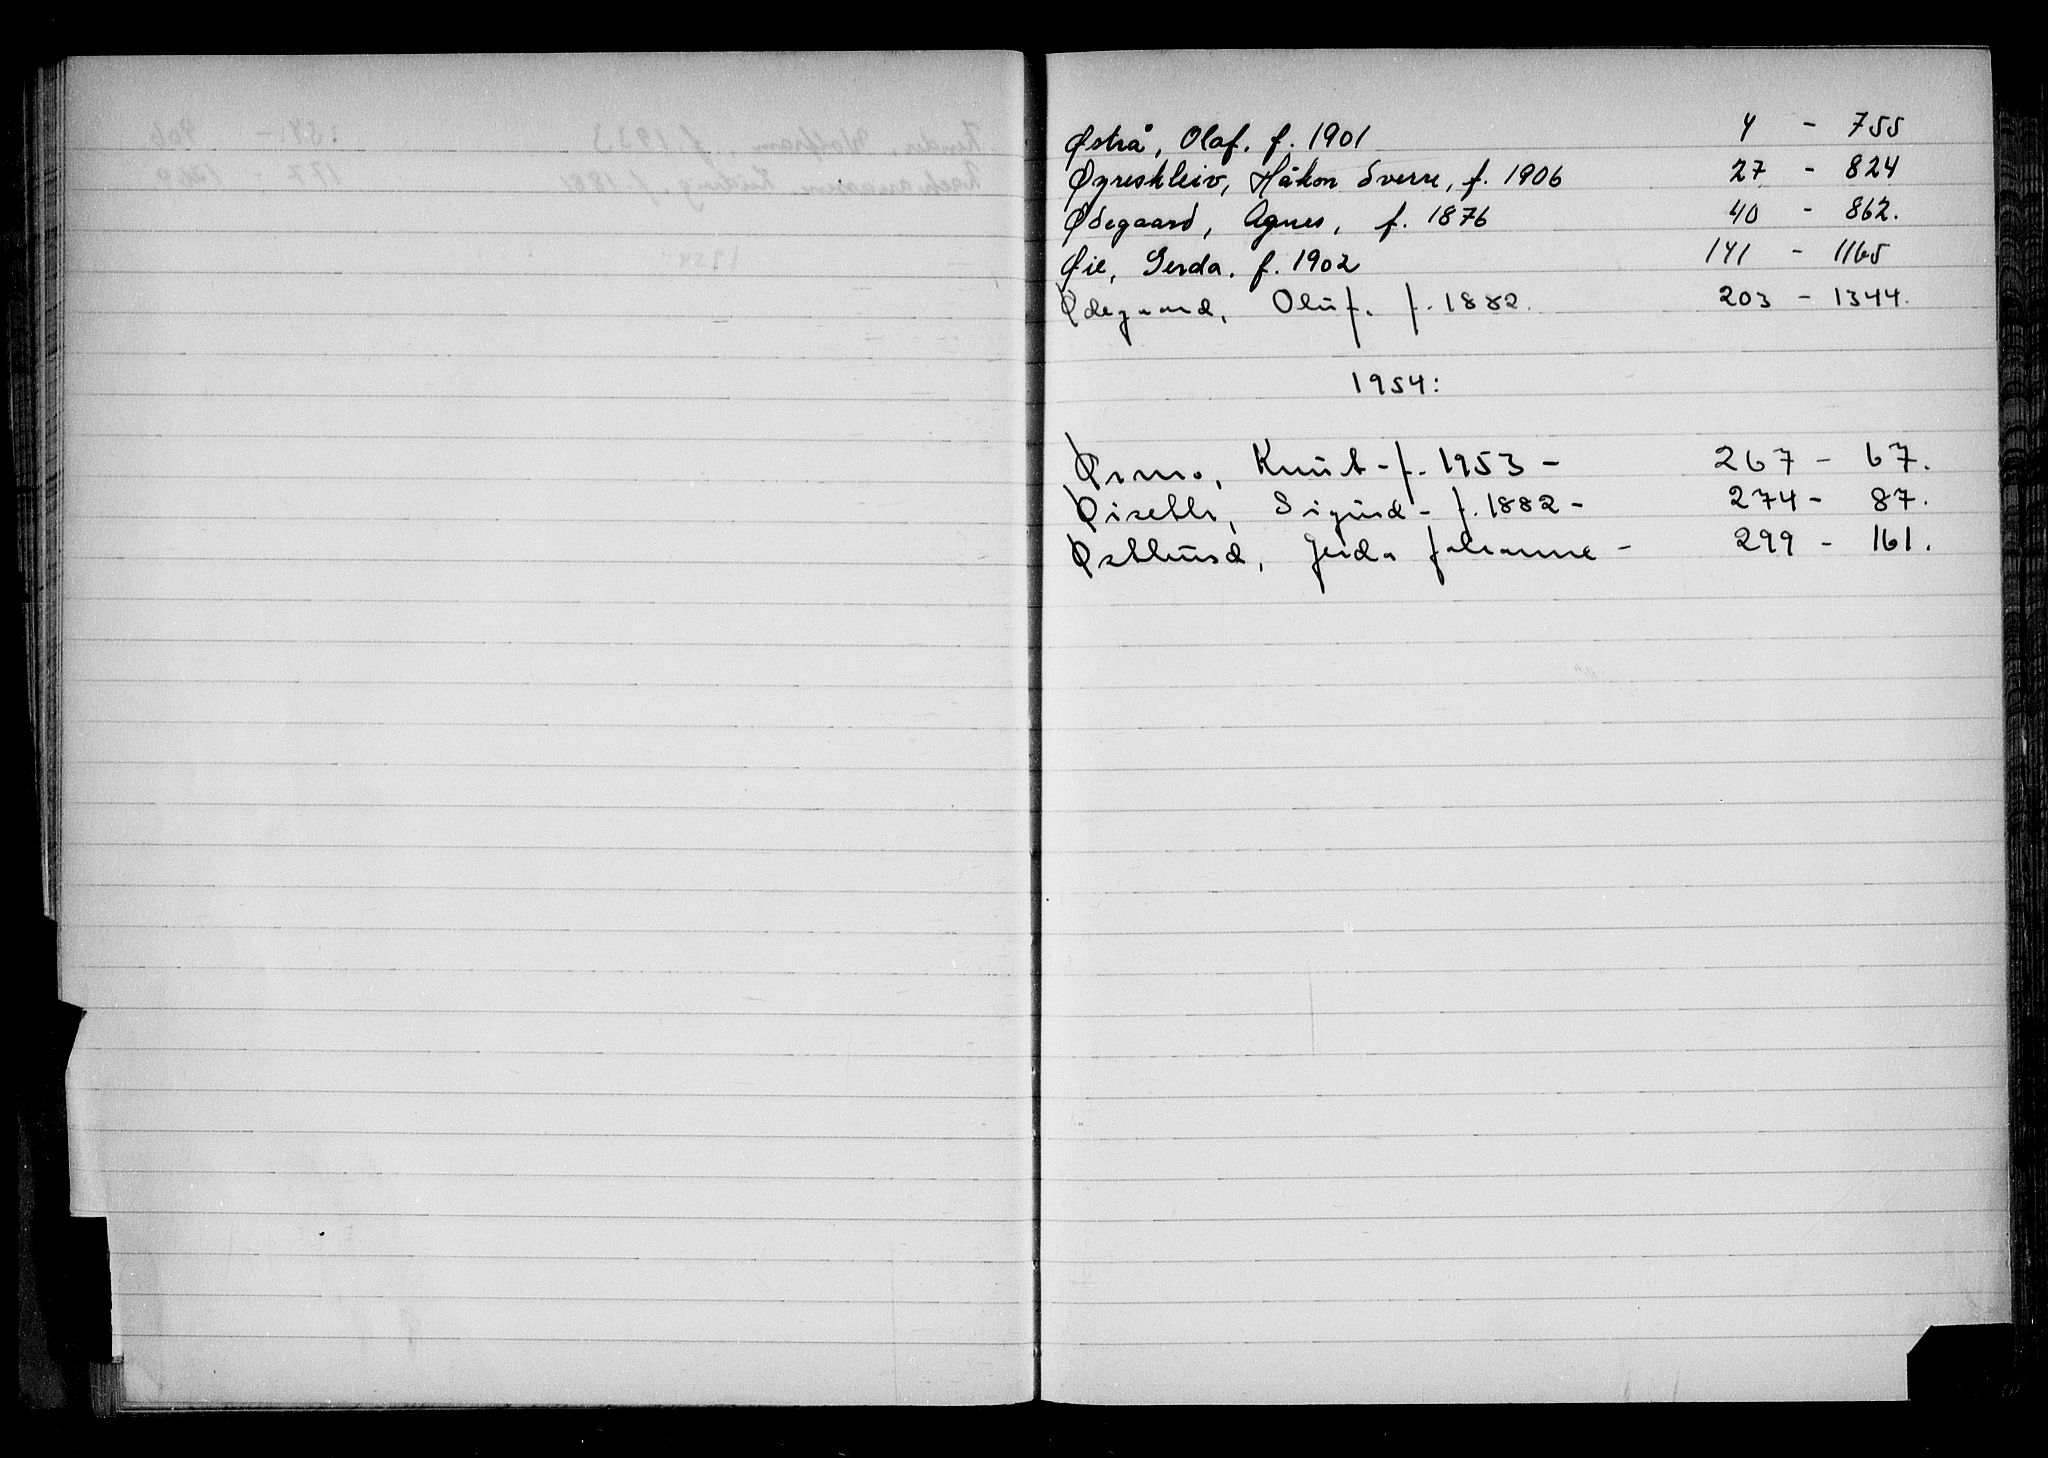 Østrå, Olaf. f. 1901 4 - 755
Øyreskleiv, Håkon Sverre, f. 1906 27 - 824
Ødegaard, Agnes, f. 1876 40 - 862.
Øie, Gerda. f. 1902 141 - 1165
Ødegaard, Oluf. f. 1882. 203 - 1344.
1954:
Ørmo, Knut - f. 1953 - 267 - 67.
Øiseth, Sigurd - f. 1882 - 274 - 87.
Østlund, Gerda Johanne - 299 - 161.